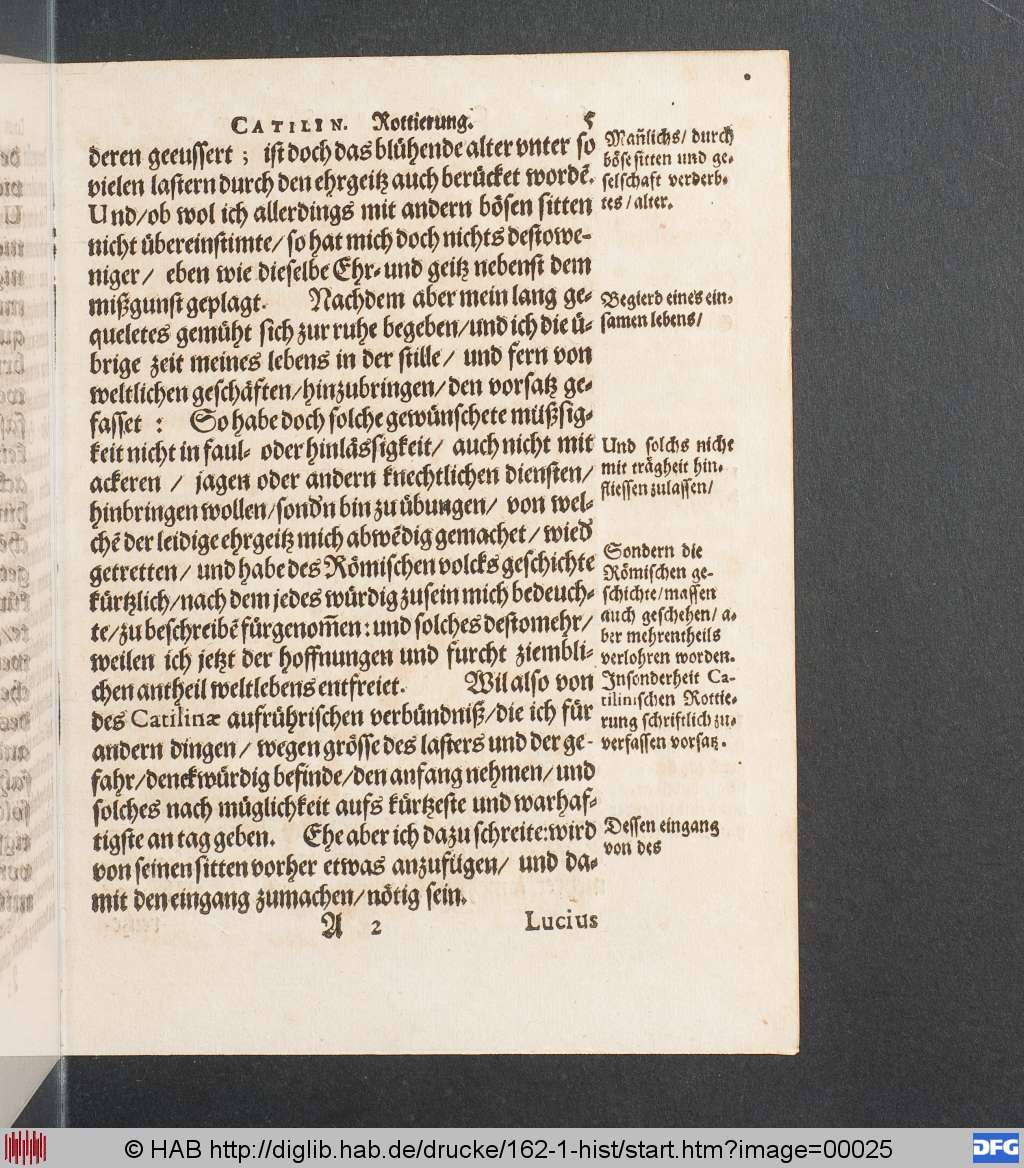 CATILIN. Rottierung. 5
deren geeussert; ist doch das blühende alter vnter so
vielen lastern durch den ehrgeitz auch berücket wordē.
Und/ob wol ich allerdings mit andern bösen sitten
nicht übereinstimte/ so hat mich doch nichts destowe-
niger/ eben wie dieselbe Ehr- und geitz nebenst dem
mißgunst geplagt. Nachdem aber mein lang ge-
queletes gemüht sich zur ruhe begeben/und ich die ü-
brige zeit meines lebens in der stille/ und fern von
weltlichen geschäften/hinzubringen/den vorsatz ge-
fasset : So habe doch solche gewünschete müßsig-
keit nicht in faul- oder hinlässigkeit/ auch nicht mit
ackeren / jagen oder andern knechtlichen diensten/
hinbringen wollen/sond'n bin zu übungen/ von wel-
chē der leidige ehrgeitz mich abwēdig gemachet/ wied'
getretten/ und habe des Römischen volcks geschichte
kürtzlich/nach dem jedes würdig zusein mich bedeuch-
te/zu beschreibē fürgenom̄en: und solches destomehr/
weilen ich jetzt der hoffnungen und furcht ziembli-
chen antheil weltlebens entfreiet. Wil also von
des Catilinæ aufrührischen verbündniß/die ich für
andern dingen/ wegen grösse des lasters und der ge-
fahr/denckwürdig befinde/den anfang nehmen/und
solches nach müglichkeit aufs kürtzeste und warhaf-
tigste an tag geben. Ehe aber ich dazu schreite:wird
von seinen sitten vorher etwas anzufügen/ und da-
mit den eingang zumachen/nötig sein.
A 2 Lucius
Mañlichs/ durch
böse sitten und ge-
selschaft verderb-
tes/alter.
Begierd eines ein-
samen lebens/
Und solchs nicht
mit trägheit hin-
fliessen zulassen/
Sondern die
Römischen ge-
schichte/massen
auch geschehen/ a-
ber mehrentheils
verlohren worden.
Insonderheit Ca-
tilinischen Rottie-
rung schriftlich zu-
verfassen vorsatz.
Dessen eingang
von des
© HAB http://diglib.hab.de/drucke/162-1-hist/start.htm?image=00025
DFG